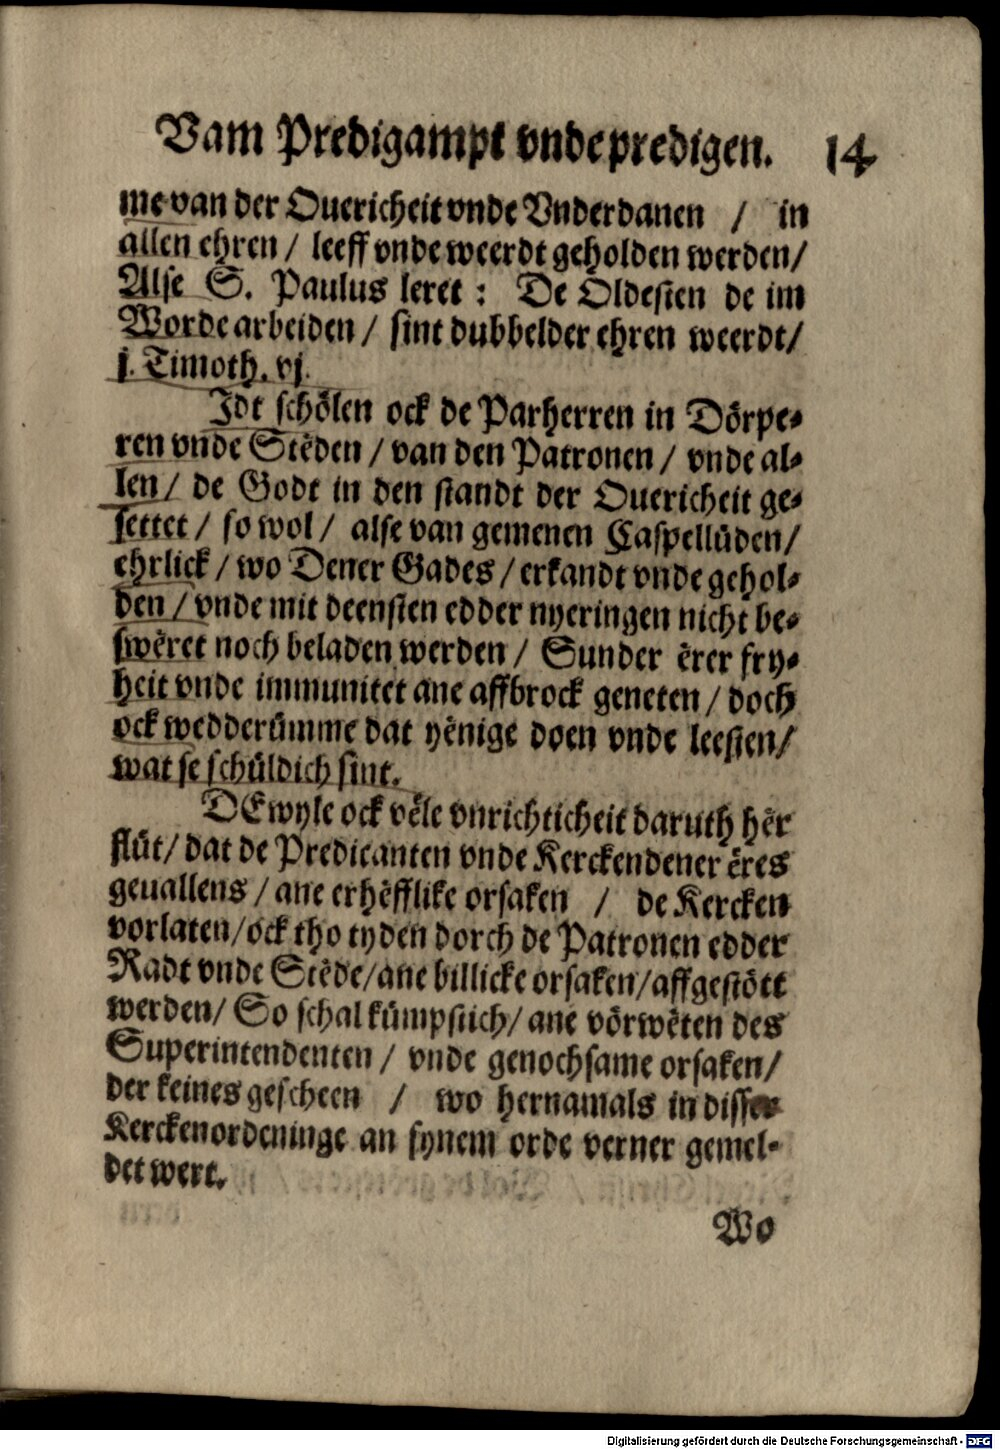 Vam Predigampt vnde predigen. 14
me van der Ouericheit vnde Vnderdanen / in
allen ehren / leeff vnde weerdt geholden werden/
Alse S. Paulus leret : De Oldesten de im
Worde arbeiden / sint dubbelder ehren weerdt/
j. Timoth. vj.
Jdt schölen ock de Parherren in Dörpe-
ren vnde Stëden / van den Patronen / vnde al-
len / de Godt in den standt der Ouericheit ge-
settet / so wol / alse van gemenen Caspellüden/
ehrlick / wo Dener Gades / erkandt vnde gehol-
den / vnde mit deensten edder nyeringen nicht be-
swëret noch beladen werden / Sunder ërer fry-
heit vnde immunitet ane affbrock geneten / doch
ock wedderümme dat yënige doen vnde leesten/
wat se schüldich sint.
DEwyle ock vële vnrichticheit daruth hër
flüt/ dat de Predicanten vnde Kerckendener ëres
geuallens / ane erhëfflike orsaken / de Kercken
vorlaten/ ock tho tyden dorch de Patronen edder
Radt vnde Stëde/ ane billicke orsaken/ affgestött
werden/ So schal kümpstich/ ane vörwëten des
Superintendenten / vnde genochsame orsaken/
der keines gescheen / wo hernamals in disser
Kerckenordeninge an synem orde verner gemel-
det wert.
Wo
Digitalisierung gefördert durch die Deutsche Forschungsgemeinschaft - DFG